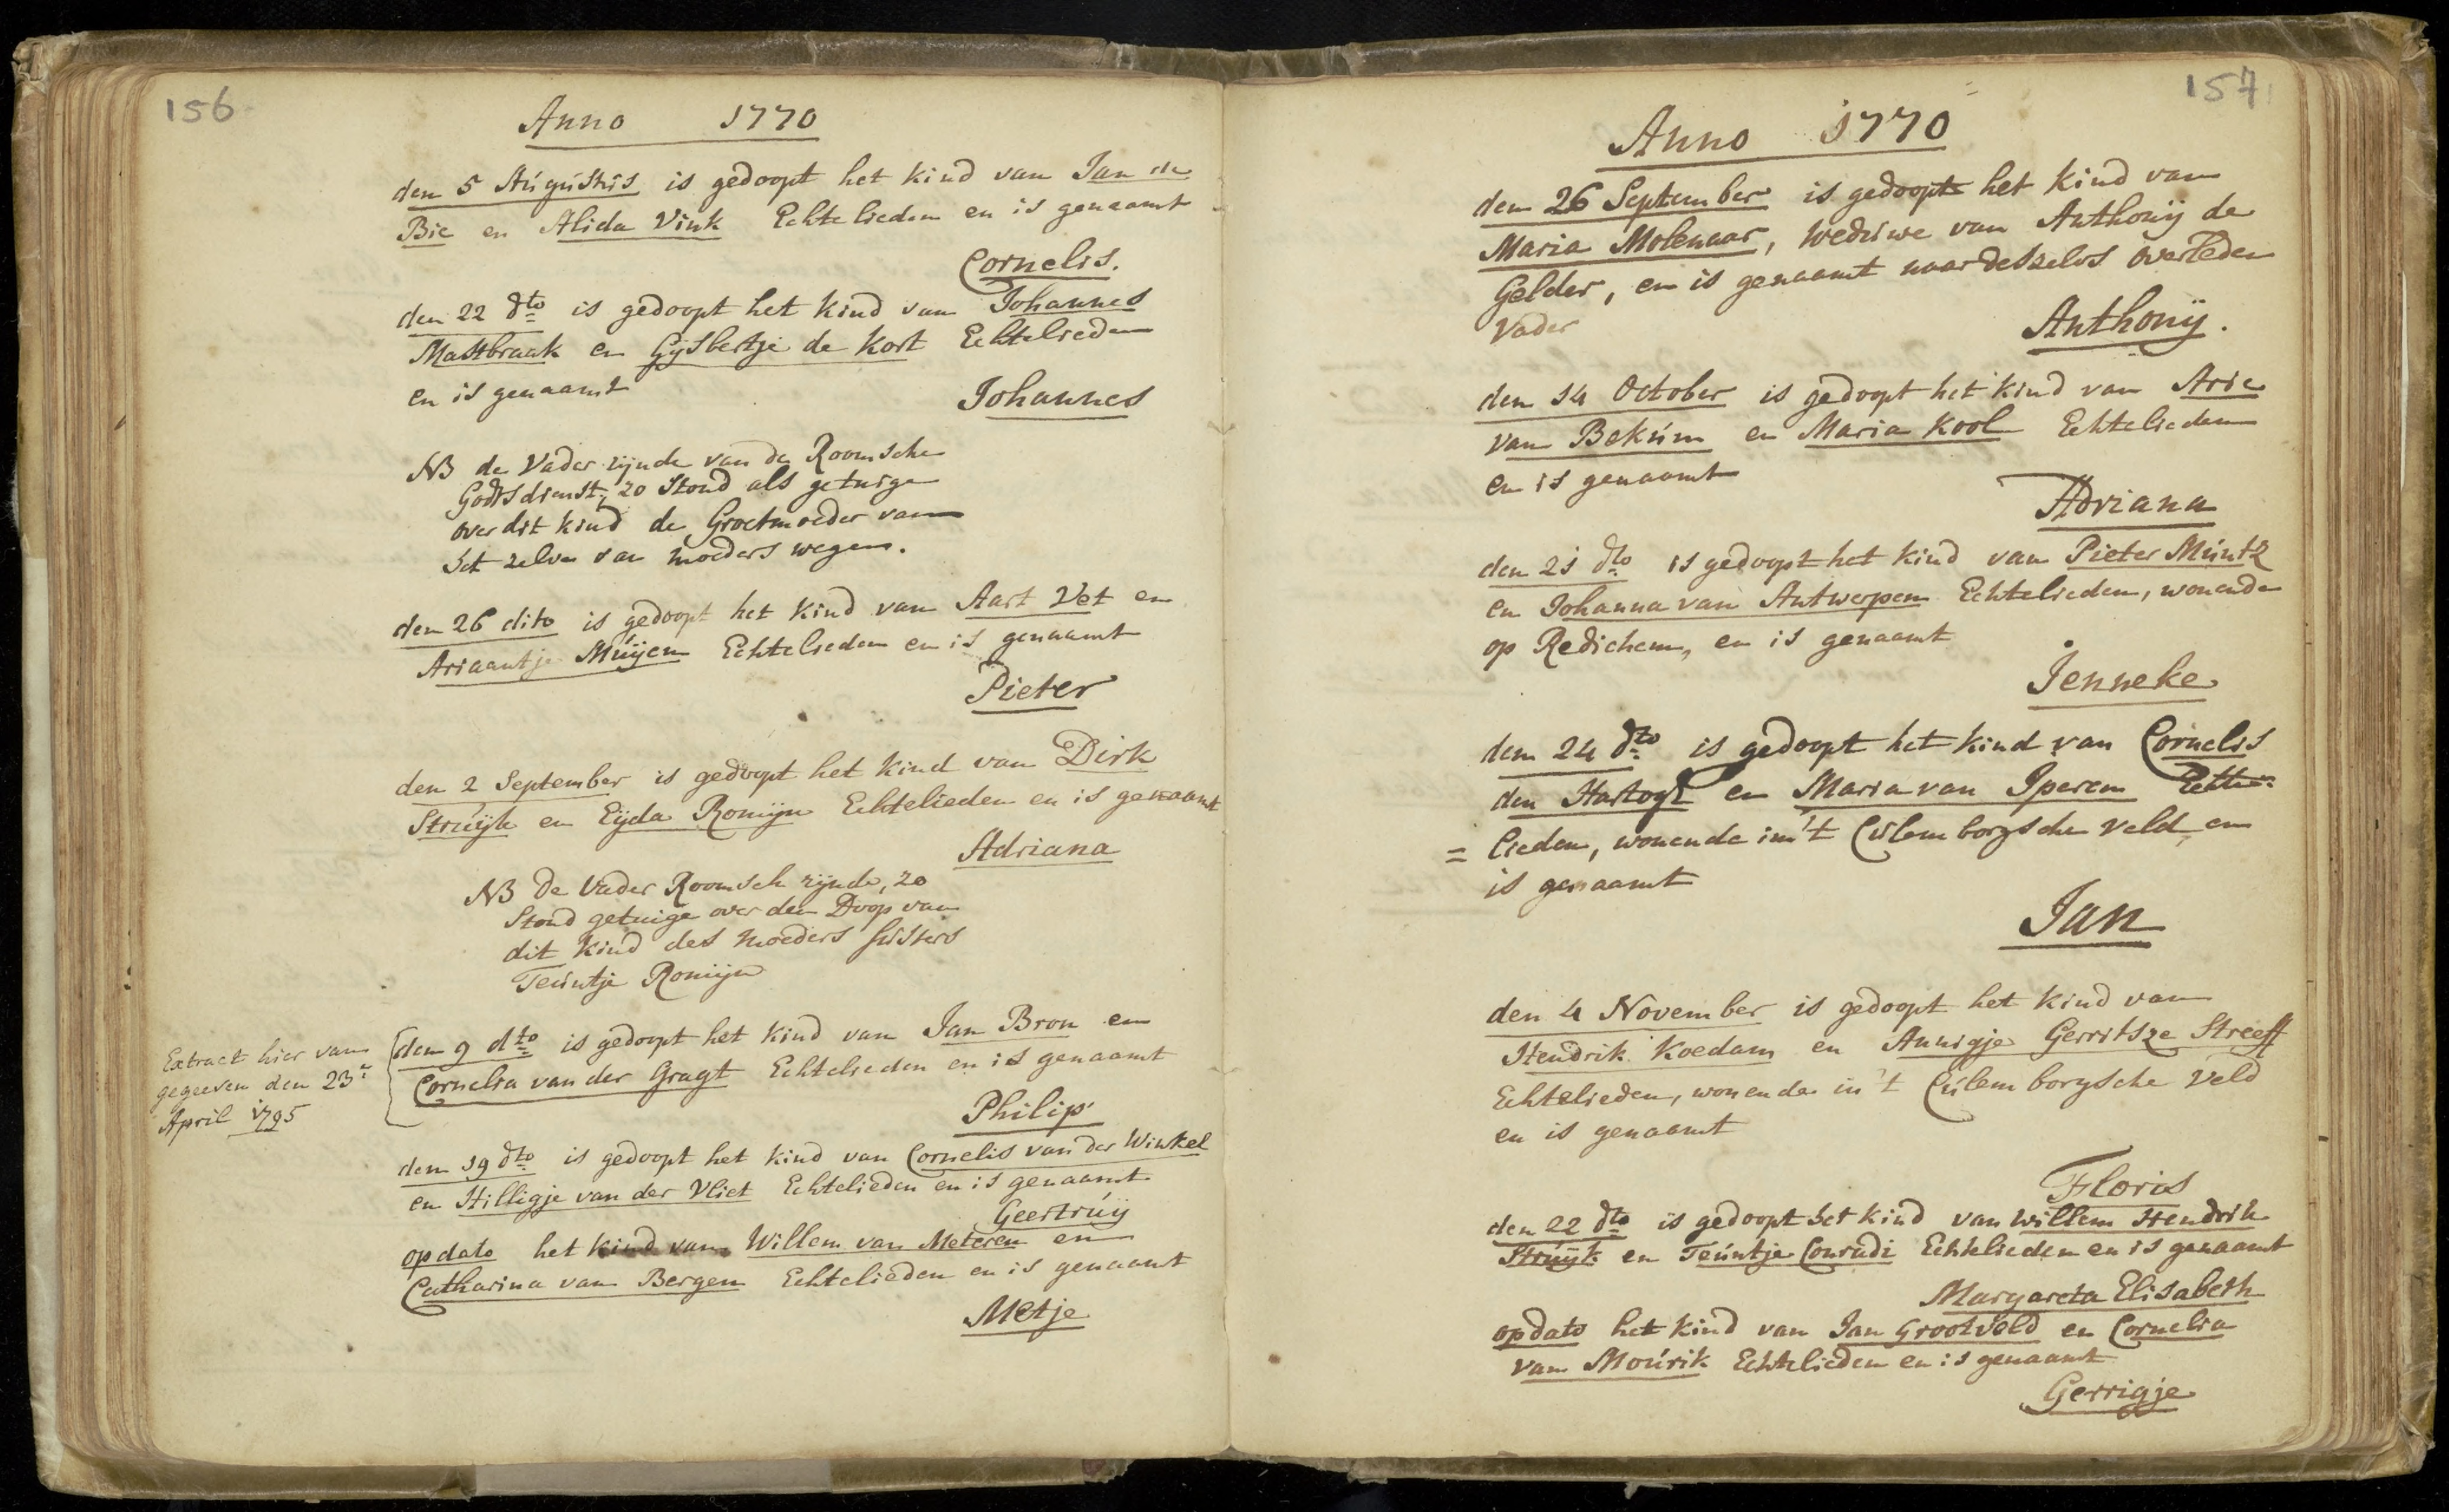 156
Anno 1770
den 5 Augustus is gedoopt het kind van Jan de
Bie en Alida Vink Echtelieden en is genaamt
Cornelis.
den 22 dto is gedoopt het kind van Johannes
Mastbraak en Gijsbertje de Kort Echtelieden
en is genaamt
Johannes
NB de Vader zijnde van de Roomsche
Godtsdienst, zo stond als getuige
over dit kind de Grootmoeder van
het zelve van moeders wegen.
den 26 dito is gedoopt het kind van Aart Vet en
Ariaantje Muijen Echtelieden en is genaamt
Pieter
den 2 September is gedoopt het kind van Dirk
Struijk en Eijda Romijn Echtelieden en is genaamt
Adriana
NB de Vader Roomsch zijnde, zo
stond getuige over den Doop van
dit kind des moeders susters
Teuntje Romijn
Extract hier van
gegeeven den 23e
April 1795
den 9 dto is gedoopt het kind van Jan Bron en
Cornelia van der Gragt Echtelieden en is genaamt
Philip
den 19 dto is gedoopt het kind van Cornelis van der Winkel
en Hilligje van der Vliet Echtelieden en is genaamt
Geertruij
op dato het kind van Willem van Meteren en
Catharina van Bergen Echtelieden en is genaamt
Metje
157
Anno 1770
den 26 September is gedoopt het kind van
Maria Molenaar, weduwe van Anthonij de
Gelder, en is genaamt naar deszelvs overleden
Vader
Anthonij.
den 14 October is gedoopt het kind van Arie
van Bekum en Maria Kool Echtelieden
en is genaamt
Adriana
den 21 dto is gedoopt het kind van Pieter Muntz
en Johanna van Antwerpen Echtelieden, wonende
op Redichem, en is genaamt
Jenneke
den 24 dto is gedoopt het kind van Cornelis
den Hartogh en Maria van Iperen Echte=
= lieden, wonende in 't Culemborgsche Veld, en
is genaamt
Jan
den 4 November is gedoopt het kind van
Hendrik Koedam en Annigje Gerritsze Streeff
Echtelieden, wonende in 't Culemborgsche Veld
en is genaamt
Floris
den 22 dto is gedoopt het kind van Willem Hendrik
Struijk en Teuntje Conradi Echtelieden en is genaamt
Margareta Elisabeth
op dato het kind van Jan Grootveld en Cornelia
van Mourik Echtelieden en is genaamt
Gerrigje